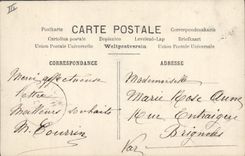 III
Postkarte
CARTE POSTALE
Correspondenzkarte
Cartolina postale
Dopisnice
Levelezö-Lap
Briefkaart
Union Postale Universelle
Weltpostverein
Union Postale Universelle
CORRESPONDANCE
ADRESSE
Merci affectueuse
lettre
Meilleurs souhaits
M. Dourrin
Mademoiselle
Marie Rose Aune
Rue Entraigues
Brignoles
Var